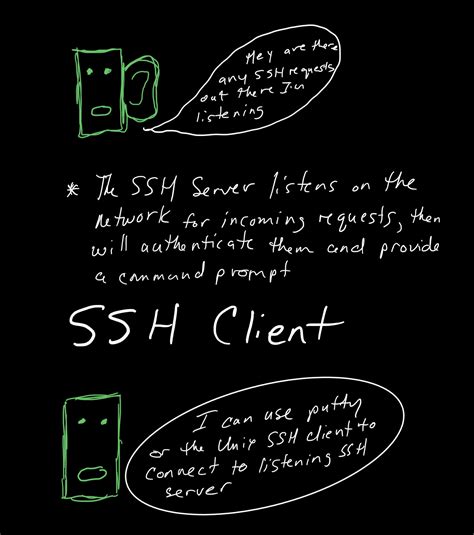 Hey are there
any SSH requests
out there I'm
listening
* The SSH Server listens on the
Network for incoming requests, then
will authenticate them and provide
a command prompt
SSH Client
I can use putty
or the Unix SSH client to
connect to listening SSH
server